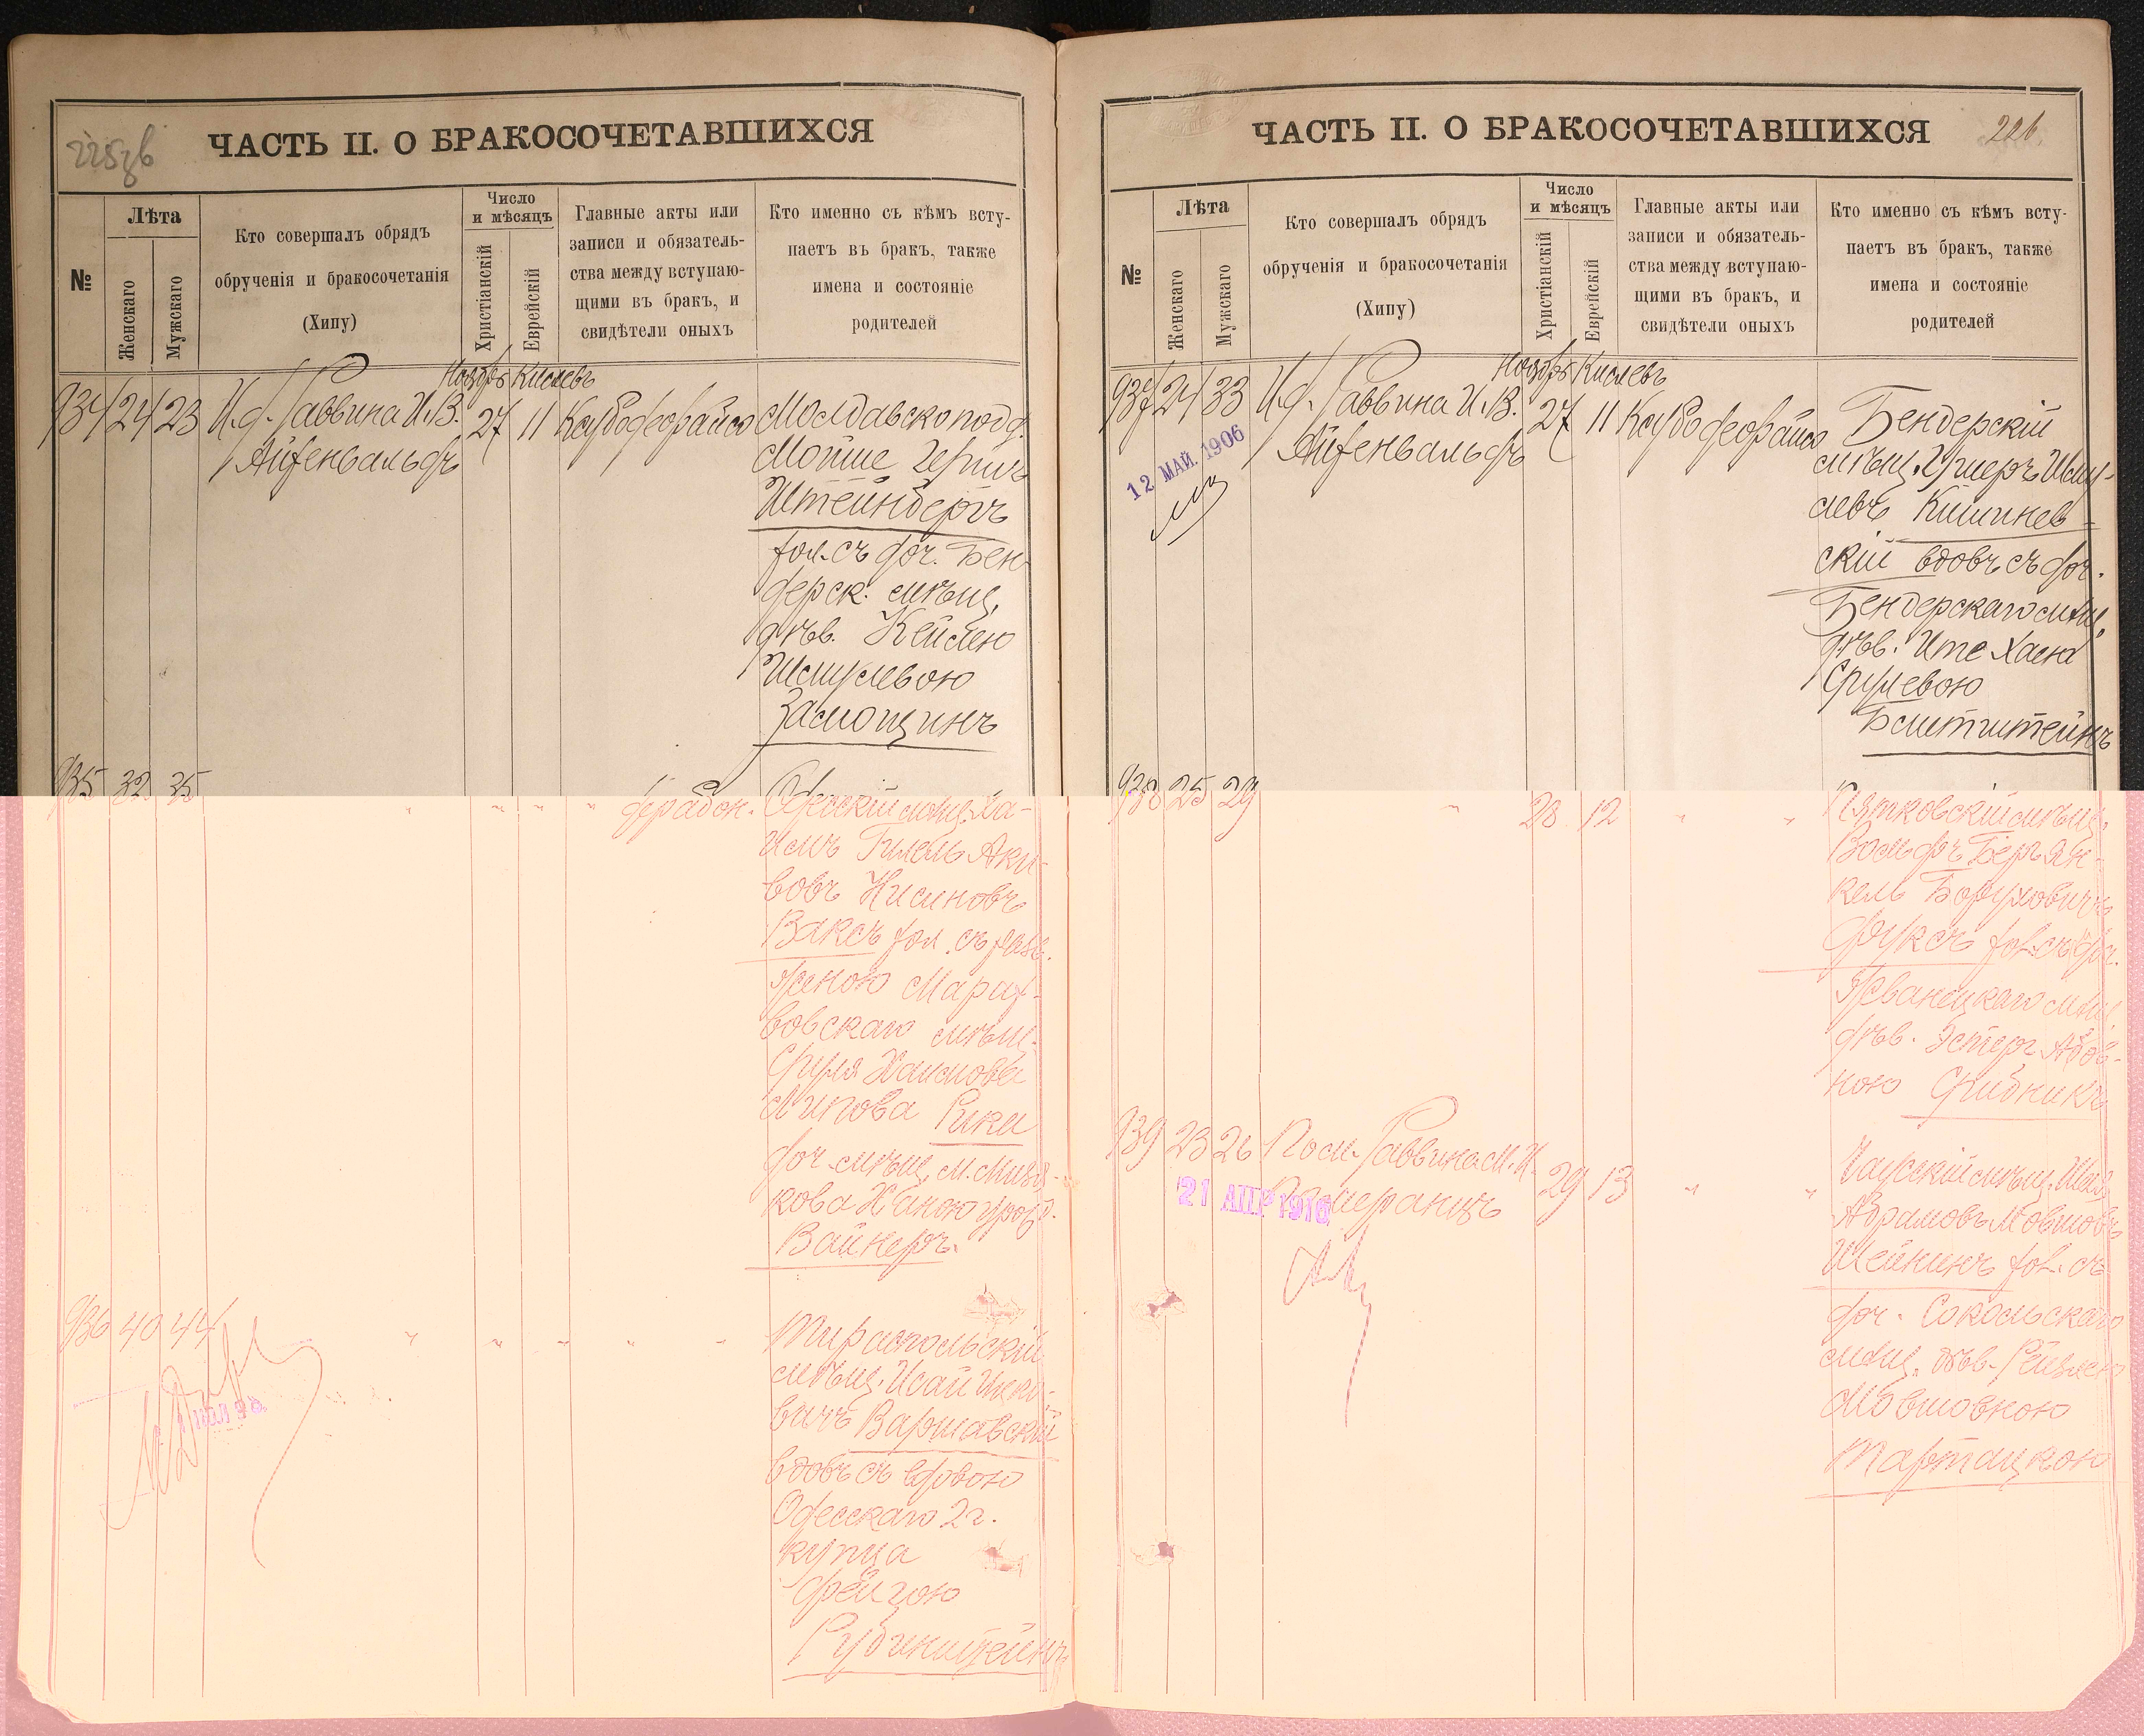 225об
ЧАСТЬ II. О БРАКОСОЧЕТАВШИХСЯ
№
Лѣта
Женскаго
Мужскаго
Кто совершалъ обрядъ
обрученія и бракосочетанія
(Хипу)
Число
и мѣсяцъ
Христіанскій
Еврейскій
Главные акты или
записи и обязатель-
ства между вступаю-
щими въ бракъ, и
свидѣтели оныхъ
Кто именно съ кѣмъ всту-
паетъ въ бракъ, также
имена и состояніе
родителей
Ноябрь Кислевъ
934 24 23 И.д. Раввина И.В. 27 11
Айзенвальдъ
Молдавско подд.
Мойше Гершъ
Штейнбергъ
хол. съ доч. Бен
дерск. мѣщ.
дѣв. Кейлею
Шмулевою
Замощинъ
935 32 35
Одесскій мѣщ. Ха-
имъ Гилель Аки-
вовъ Нисиновъ
Ваксъ хол. съ разв.
женою Мараж-
вовскаго мѣщ.
Сруля Хаимова
Липова Рики
доч. мѣщ. м.
кова Ханою урожд.
Вайнеръ.
936 40 44
Тираспольскій
мѣщ. Исай Ицко-
вичъ Варшавскій
вдовъ съ вдовою
Одесскаго 2 г.
купца
Фейгою
Рубинштейнъ
ЧАСТЬ II. О БРАКОСОЧЕТАВШИХСЯ
226
№
Лѣта
Женскаго
Мужскаго
Кто совершалъ обрядъ
обрученія и бракосочетанія
(Хипу)
Число
и мѣсяцъ
Христіанскій
Еврейскій
Главные акты или
записи и обязатель-
ства между вступаю-
щими въ бракъ, и
свидѣтели оныхъ
Кто именно съ кѣмъ всту-
паетъ въ бракъ, также
имена и состояніе
родителей
Ноябрь Кислевъ
937 24 33 И.д. Раввина И.В. 27 11
Айзенвальдъ
12 МАЙ 1906
Бендерскій
мѣщ. Ушеръ Шму-
левъ Кишинев-
скій вдовъ съ доч.
Бендерскаго мѣщ.
дѣв. Ите Хаею
Срулевою
Блитштейнъ
938 25 29 28 12
Пятковскій мѣщ.
Вольфъ Беръ Ян-
кель Боруховичъ
Фуксъ хол. съ доч.
Жванецкаго мѣщ.
дѣв. Эстеръ
ною Срибникъ
939 23 26 Пом. Раввина М.И. 29 13
Померанцъ
21 АПР 1916
мѣщ.
Абрамовъ Мовшовъ
Шейнинъ хол. съ
доч. Сокольскаго
мѣщ. дѣв. Рейзлею
Мовшовною
Тартацкою